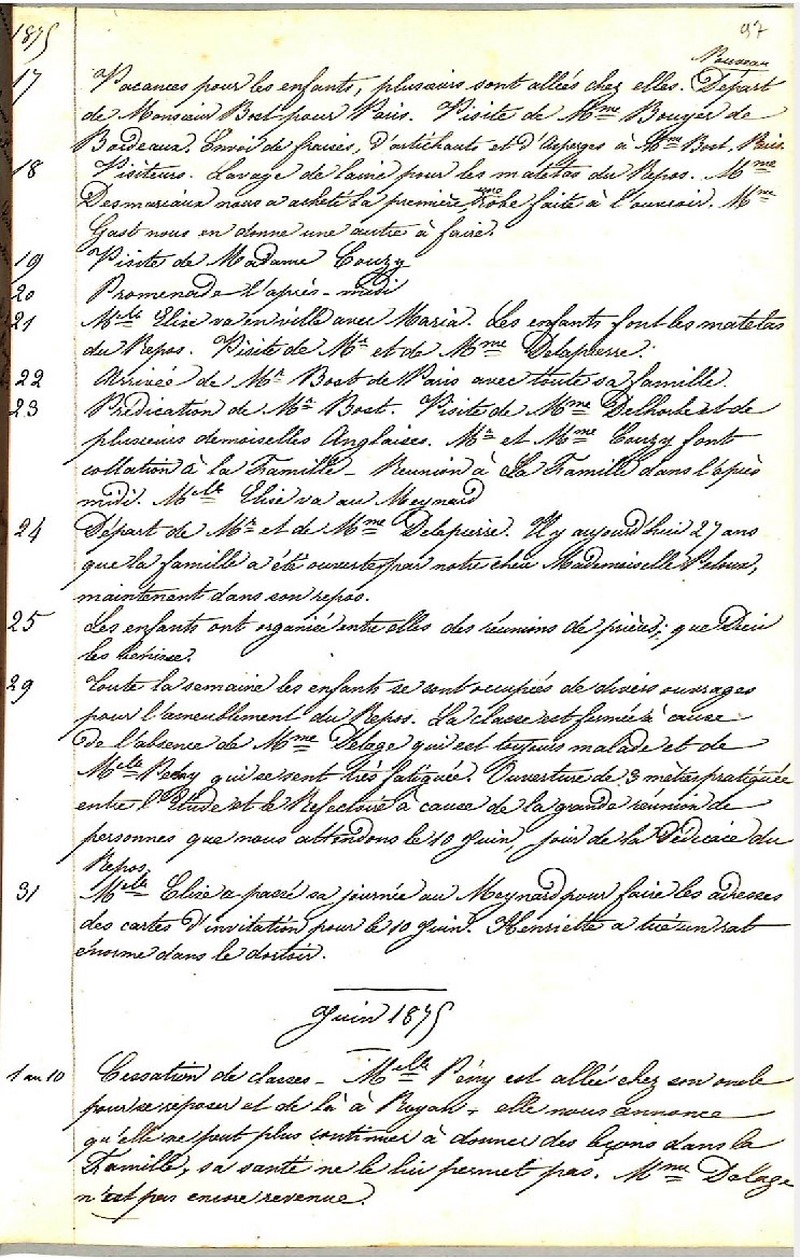 1875
97
Nouveau
17 Vacances pour les enfants, plusieurs sont allées chez elles. Départ
de Monsieur Bost pour Paris. Visite de Mme Bouyer de
Bordeaux. Envoi de fraises, d'artichauts et d'Asperges à Mme Bost. Paris.
18 Visiteurs. Lavage de laine pour les matelas du Repos. Mme
Desmariaux nous a acheté la première robe faite à l'ouvroir. Mme
Gast nous en donne une autre à faire.
19 Visite de Madame Couzy
20 Promenade l'après-midi
21 Mlle Elise va en ville avec Maria. Les enfants font les matelas
du Repos. Visite de Mr et de Mme Delapierre.
22 Arrivée de Mr Bost de Paris avec toute sa famille.
23 Prédication de Mr Bost. Visite de Mme Delhorbe et de
plusieurs demoiselles Anglaises. Mr et Mme Couzy font
collation à la Famille - Réunion à La Famille dans l'après
midi. Mlle Elise va au Meynard
24 Départ de Mr et de Mme Delapierre. Il y aujourd'hui 27 ans
que la famille a été ouverte par notre chère Mademoiselle Peloux,
maintenant dans son repos.
25 Les enfants ont organisé entre elles des réunions de prières; que Dieu
les bénisse.
29 Toute la semaine les enfants se sont occupées de divers ouvrages
pour l'ameublement du Repos. La classe est fermée à cause
de l'absence de Mme Delage qui est toujours malade et de
Mlle Pény qui se sent très fatiguée. Ouverture de 3 mètres pratiquée
entre l'Etude et le Réfectoire à cause de la grande réunion de
personnes que nous attendons le 10 Juin, jour de la Dédicace du
Repos.
31 Mlle Elise a passé sa journée au Meynard pour faire les adresses
des cartes d'invitation pour le 10 Juin. Henriette a tué un rat
énorme dans le dortoir.
Juin 1875
1 au 10 Cessation de classes - Melle Pény est allée chez son oncle
pour se reposer et de là à Royan, elle nous annonce
qu'elle ne peut plus continuer à donner des leçons dans la
Famille, sa santé ne le lui permet pas. Mme Delage
n'est pas encore revenue.